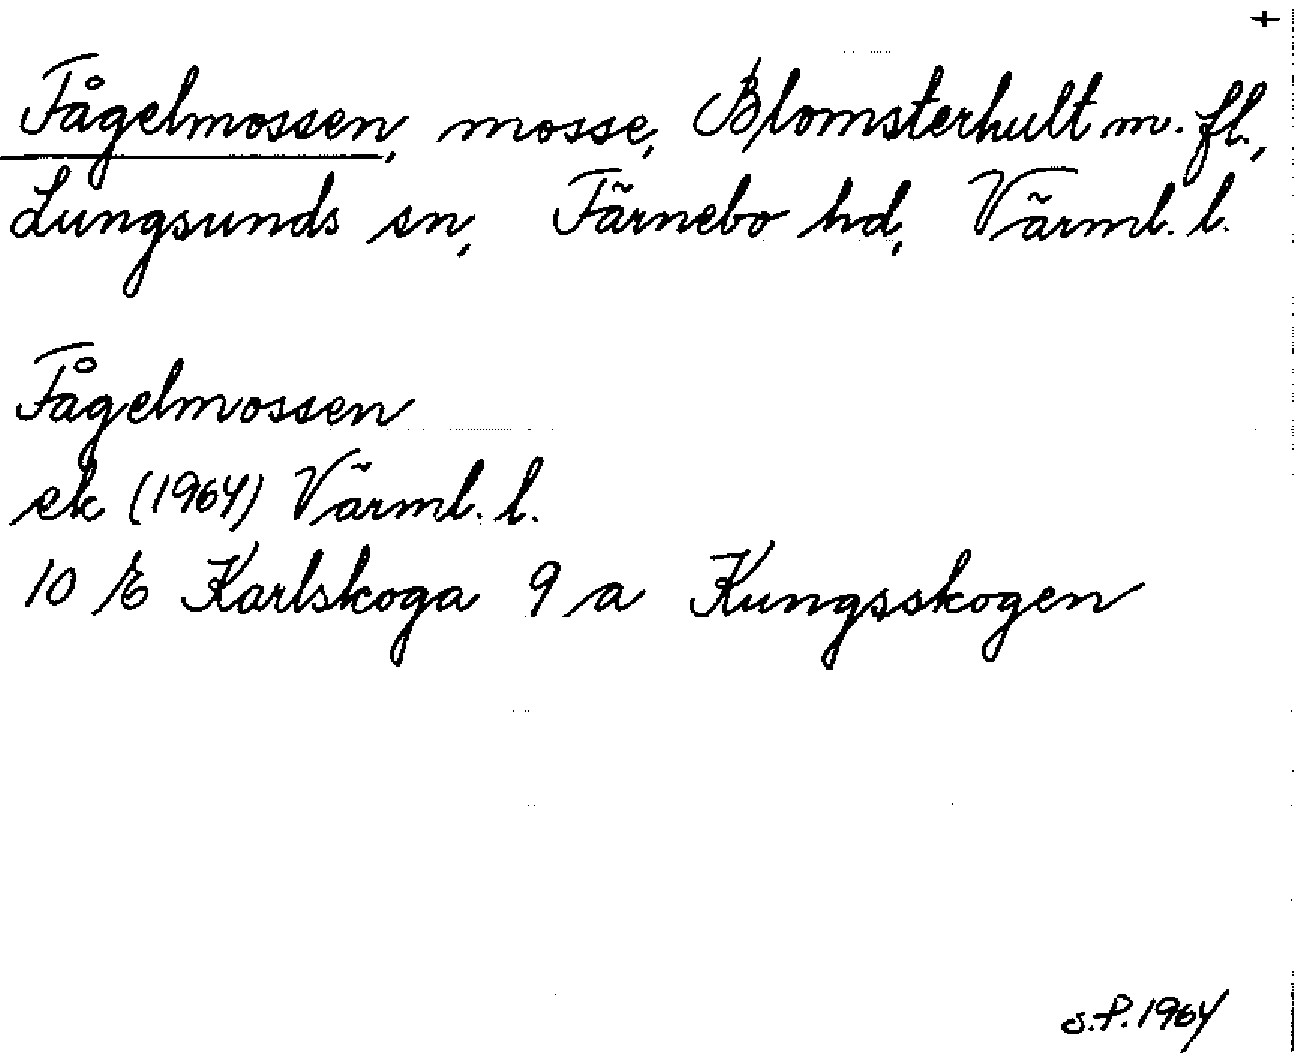 +
Fågelmossen, mosse, Blomsterhult m. fl.,
Lungsunds sn, Färnebo hd, Värml. l.
Fågelmossen
ek (1964) Värml. l.
10 E Karlskoga 9 a Kungsskogen
S.P. 1964